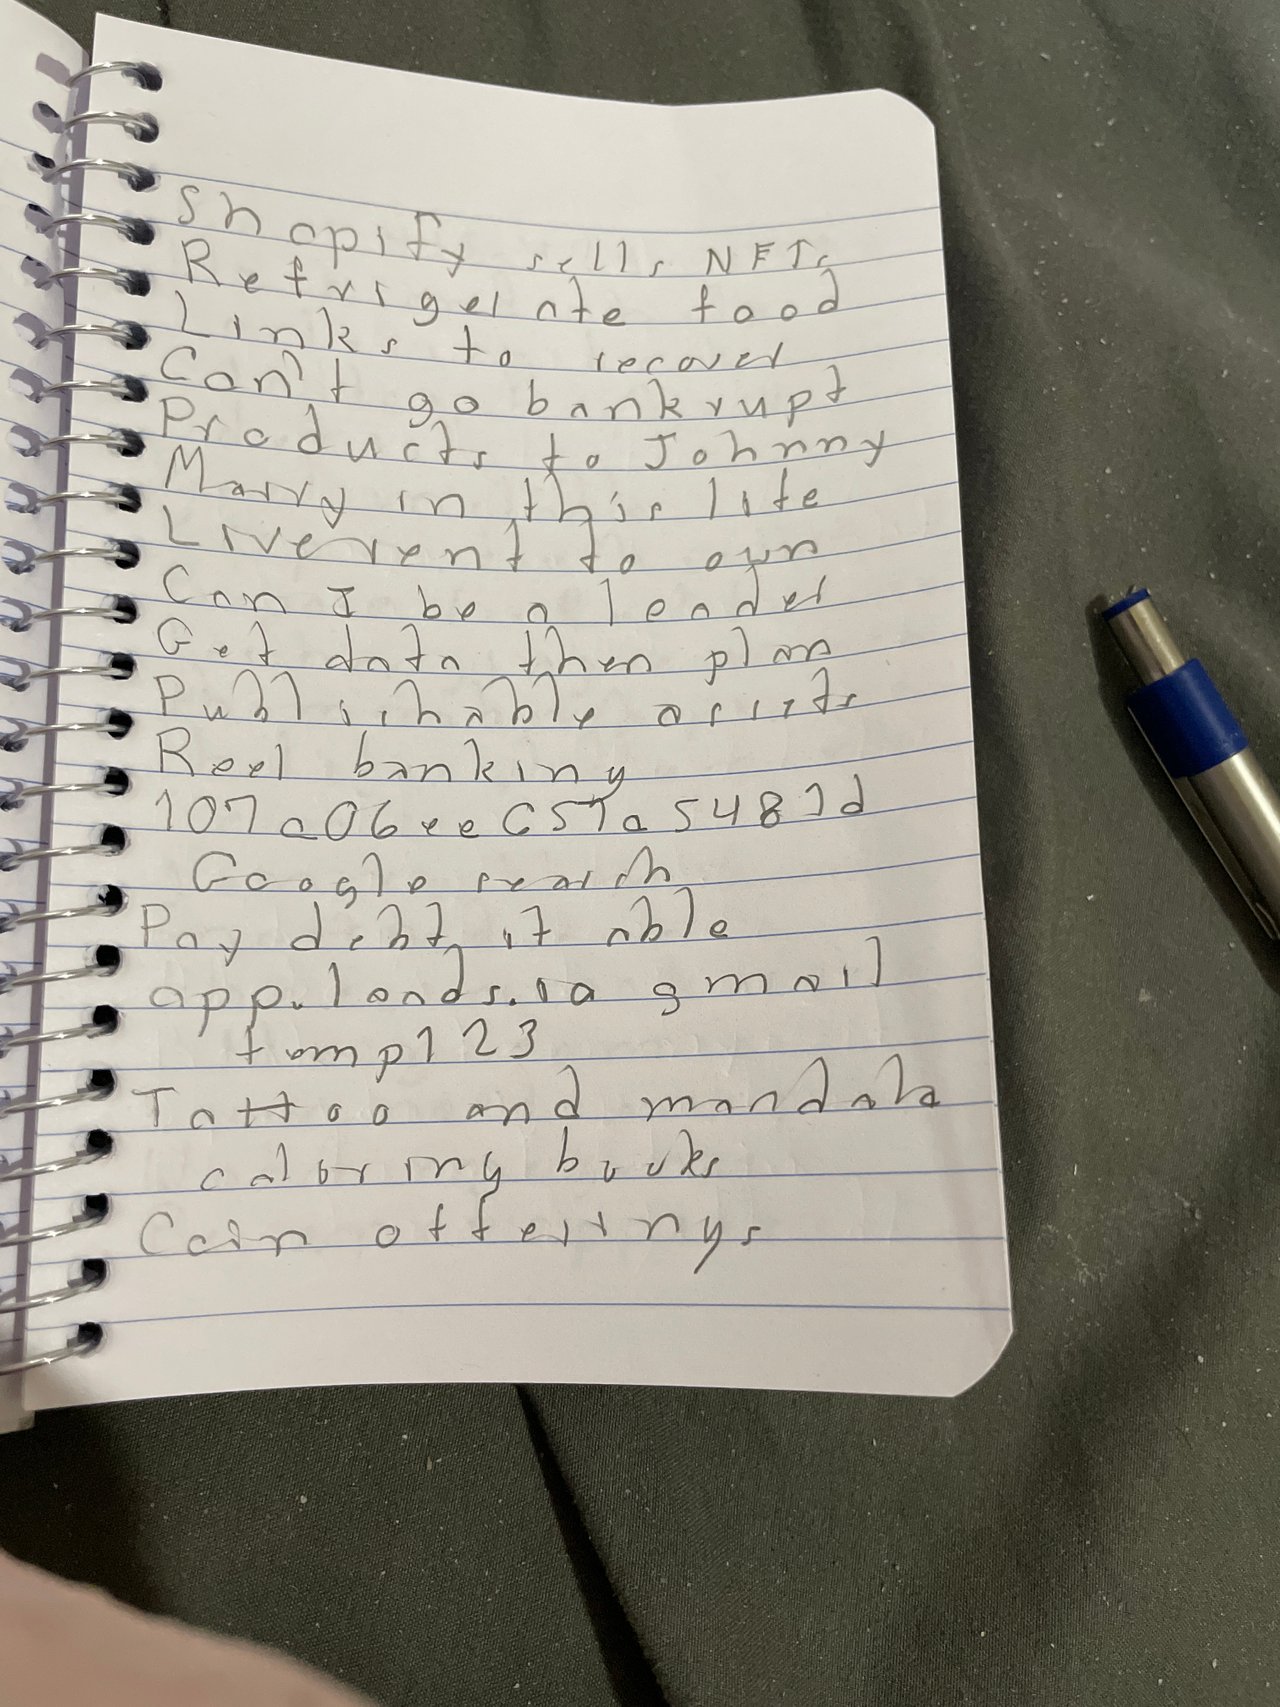 Shopify sells NFTs
Refrigerate food
Links to recover
Can't go bankrupt
Products to Johnny
Marry in this life
Live rent to own
Can I be a leader
Get data then plan
Publishable assets
Reel banking
Google search
Pay debt if able
gmail
temp123
Tattoo and mandala
coloring books
Coin offerings